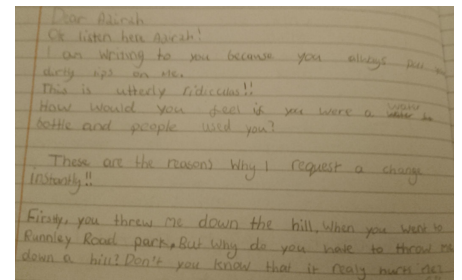 Dear Azirah
Ok listen here Azirah!
I am writing to you because you always put
dirty lips on me.
This is utterly ridiculus!!
How would you feel if you were a water
bottle and people used you?
These are the reasons Why I request a change
Instantly!!
Firstly, you threw me down the hill, When you went to
Road park, But why do you have to throw me
down a hill? Don't you know that it realy hurts me?